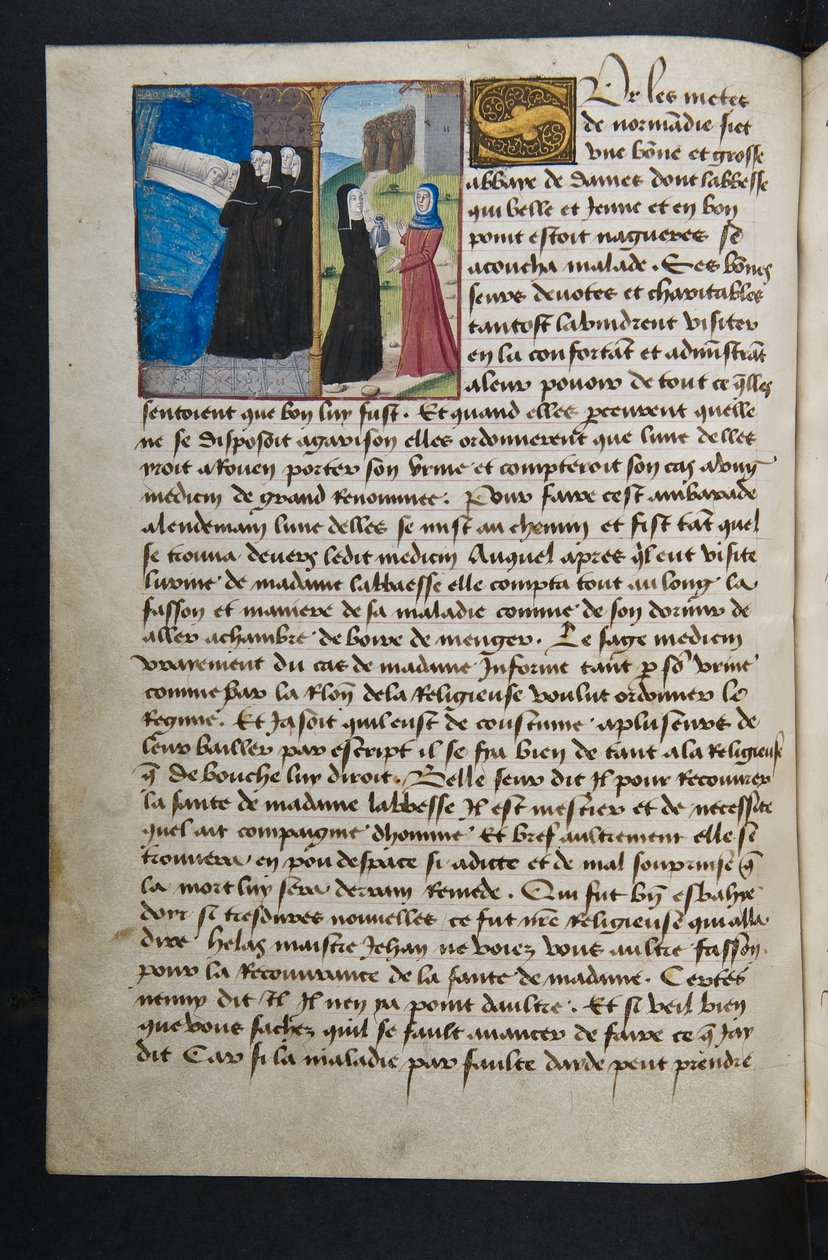 Sur les metes
de normādie siet
vne bōne et grosse
abbaye de dames dont labbesse
qui belle et Jeune et en bon
point estoit nagueres se
acoucha malade . Ses bōnes
seurs deuotes et charitables
tantost la vindrent visiter
en la confortāt et admīstrāt
a leur pouoir de tout ce q̄lles
sentoient que bon luy fust . Et quand elles perceurent quelle
ne se disposoit a garison elles ordonnerent que lune delles
yroit a Rouen porter son vrine et compteroit son cas a vng
medicin de grand Renommee . Pour faire cest ambaxade
a lendemain lune delles se mist au chemin et fist tāt quel
se trouua deuers ledit medicin Auquel apres q̄l eut visite
lurine de madame labbaesse elle compta tout au long la
fasson et maniere de sa maladie comme de son dormir de
aller a chambre de boire de menger . Le sage medicin
vrayement du cas de madame Informe tant p̱ sō vrine
comme par la Rlōn de la Religieuse voulut ordonner le
Regime . Et Ja soit quil eust de coustume a pluseurs de
leur bailler par escript il se fya bien de tant a la Religieuse
q̄ de bouche luy diroit . Belle seur dit Il pour Recouurer
la sante de madame labbesse Il est mestier et de necessite
quel ait compaignie dhomme Et bref aultrement elle se
trouuera en pou despace si adicte et de mal souprinse q̄
la mort luy sera derrain Remede . Qui fut bn̄ esbahye
doir si tresdures nouuelles ce fut nr̄e Religieuse qui alla
dire helas maistre Jehan ne voiez vous aultre fasson
pour la Recouurance de la sante de madame . Certes
nenny dit Il Il nen ya point daultre . Et si veil bien
que vous sachez quil se fault auancer de faire ce q̄ Jay
dit Car si la maladie par faulte dayde peut prendre